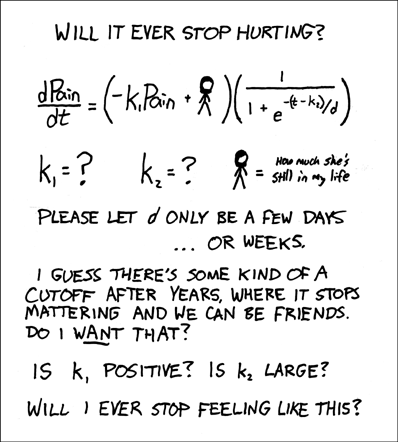 WILL IT EVER STOP HURTING?
dPain/dt = (-k₁Pain + )(1/(1 + e^-(t-k₂)/d))
k₁=? k₂=? = How much she's still in my life
PLEASE LET d ONLY BE A FEW DAYS
... OR WEEKS.
I GUESS THERE'S SOME KIND OF A
CUTOFF AFTER YEARS, WHERE IT STOPS
MATTERING AND WE CAN BE FRIENDS.
DO I WANT THAT?
IS k₁ POSITIVE? IS k₂ LARGE?
WILL I EVER STOP FEELING LIKE THIS?